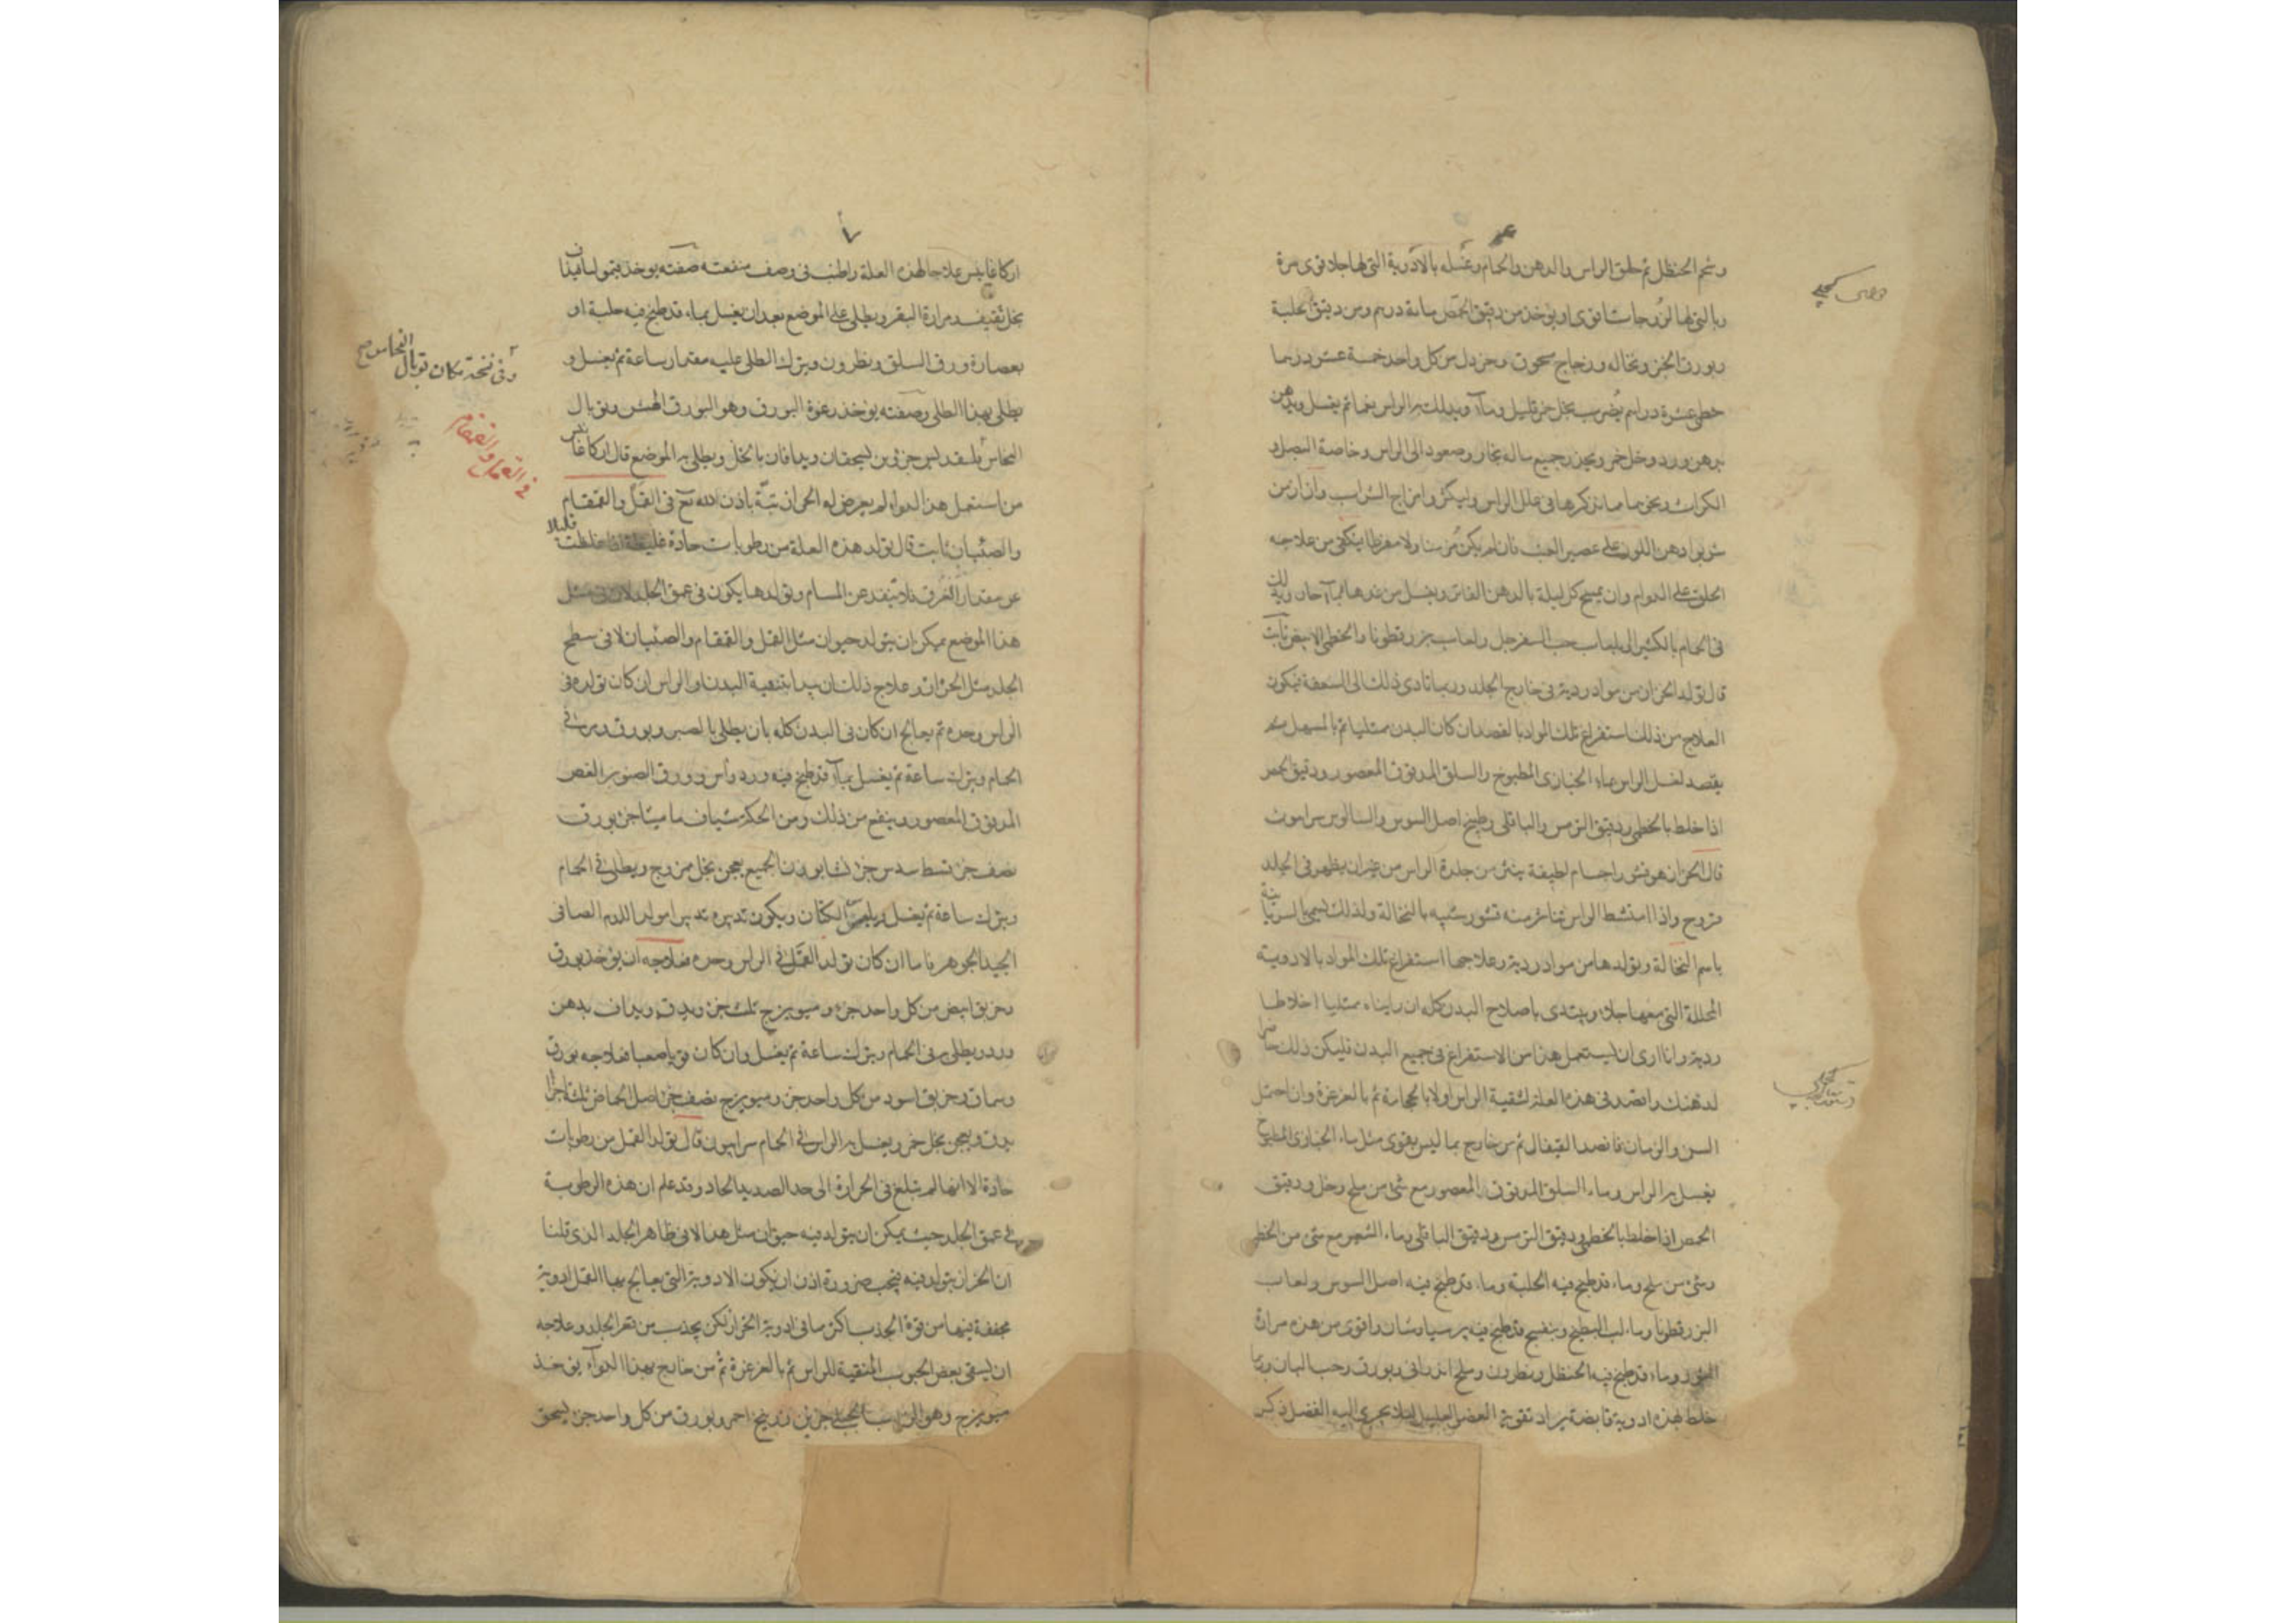 وشحم الحنظل ثم حلق الراس والدهن والحمام وغسله بالادوية التى لها جلا قوى مرة
وبالتى لها لزوجات اقوى او يؤخذ من دقيق الحمص مائة درهم ومن دقيق الحلبة
وبورق الخبز ونخاله وزجاج مسحوق وخردل من كل واحد خمسة عشر درهما
خطمى عشرة دراهم يضرب بخل خمر قليل وماء ويدلك به الراس نعما ثم يغسل ويدهن
بدهن ورد وخل خمر ويحذر جميع ماله بخار وصعود الى الراس وخاصة البصل و
الكراث ونحوهما مما نذكرها فى علل الراس وليكثروا مزاج الشراب وان
دهن اللوز على عصير العنب فان لم يكن مزمنا ولا مفرطا يكتفى من علاجه
الحلق على الدوام وان يمسح كل ليلة بالدهن الفاتر ويغسل من غدها بماء حار ويدلك
فى الحمام بالكثيرا ولعاب حب السفرجل ولعاب بزر قطونا والخطمى الابيض ثابت
قال تولد الحزاز من مواد ردية فى خارج الجلد وربما تادى ذلك الى السعفة فيكون
العلاج من ذلك استفراغ تلك المواد بالفصد ان كان البدن ممتليا ثم بالمسهل ثم
يقصد لغسل الراس بماء الخبازى المطبوخ والسلق المدقوق المعصور ودقيق الحمص
اذا خلط بالخطمى ودقيق الترمس والباقلى وطبيخ اصل السوس
قال الحزاز هو قشور اجسام لطيفة ينثر من جلدة الراس من غير ان يظهر فى الجلد
قروح واذا امتشط الراس تناثر منه قشور شبيه بالنخالة ولذلك سمى بالسريانية
باسم النخالة وتولدها من مواد ردية وعلاجها استفراغ تلك المواد بالادوية
المحللة التى معها جلاء ويبتدى باصلاح البدن كله ان رايناه ممتليا اخلاطا
ردية وانا ارى ان يستعمل هذا من الاستفراغ فى جميع البدن فليكن ذلك حاضرا
لذهنك واقصد فى هذه العلة لتنقية الراس اولا بالحجامة ثم بالغرغرة وان احتمل
السن والزمان فافصد القيفال ثم من خارج بما ليس بقوى مثل ماء الخبازى المطبوخ
يغسل به الراس وماء السلق المدقوق المعصور مع شئ من ملح وخل ودقيق
الحمص اذا خلط بالخطمى ودقيق الترمس ودقيق الباقلى وماء الشعير مع شئ من الخطمى
وشئ من ملح وماء قد طبخ فيه الحلبة وماء قد طبخ فيه اصل السوس ولعاب
البزر قطونا وماء لب البطيخ وبنفسج قد طبخ فيه برسياوشان واقوى من هذه مرارة
الثور وماء قد طبخ فيه الحنظل ونطرون وملح اندرانى وبورق وحب البان وربما
خلط بهذه ادوية قابضة يراد تقوية العضو العليل لئلا يجرى اليه الفضل ذكر
اركاغانيس علاجا لهذه العلة واطنب فى وصف منفعته صفته يوخذ قيموليا فيذاف
بخل ثقيف ومرارة البقر ويطلى على الموضع بعد ان يغسل بماء قد طبخ فيه حلبة او
بعصارة ورق السلق ونطرون ويترك الطلى عليه مقدار ساعة ثم يغسل و
يطلى بهذا الطلى وصفته يوخذ رغوة البورق وهو البورق الهش وتوبال
النحاس جزئين يسحقان ويدافان بالخل ويطلى به الموضع قال اركاغانيس
من استعمل هذا الدواء لم يعرض له الحزاز بتة باذن الله تع فى القمل والقمقام
والصئبان ثابت قال تولد هذه العلة من رطوبات حادة غليظة اذا غلظت قليلا
عن مقدار العرق فلا ينفذ عن المسام وتولدها يكون فى عمق الجلد لان فى مثل
هذا الموضع يمكن ان يتولد حيوان مثل القمل والقمقام والصئبان لا فى سطح
الجلد مثل الحزاز وعلاج ذلك ان يبدا بتنقية البدن او الراس ان كان تولده فى
الراس وحده ثم يعالج ان كان فى البدن كله بان يطلى بالصبر وبورق ومر فى
الحمام ويترك ساعة ثم يغسل بماء قد طبخ فيه ورد وآس وورق الصنوبر الغض
المدقوق المعصور وينفع من ذلك ومن الحكة شياف ماميثا جزء بورق
نصف جزء قسط سدس جزء الجميع يعجن بخل ممزوج ويطلى فى الحمام
ويترك ساعة ثم يغسل ويلبس الكتان ويكون تدبيره تدبير امولد الدم الصافى
الجيد الجوهر فاما ان كان تولد القمل فى الراس وحده فعلاجه ان يؤخذ بورق
وخربق ابيض من كل واحد جزء وميويزج ثلث جزء ويدق ويداف بدهن
ورد ويطلى به فى الحمام ويترك ساعة ثم يغسل وان كان قويا صعبا فعلاجه بورق
وسماق وخربق اسود من كل واحد جزء وميويزج نصف جزء اصل الحماض ثلثة اجزا
يدق ويعجن بخل خمر ويغسل به الراس فى الحمام سرابيون قال تولد القمل من رطوبات
حادة الا انها لم تبلغ فى الحرارة الى حد الصديد الحاد وقد علم ان هذه الرطوبة
فى عمق الجلد حيث يمكن ان يتولد فيه حيوان مثل هذا لا فى ظاهر الجلد الذى قلنا
ان الحزاز يتولد فيه فيجب ضرورة اذن ان يكون الادوية التى يعالج بها القمل ادوية
مجففة فيها من قوة الجذب اكثر ما فى ادوية الحزاز لكن يجذب من قعر الجلد وعلاجه
ان يسقى بعض الحبوب المنقية للراس ثم بالغرغرة ثم من خارج بهذا الدواء يؤخذ
ميويزج وهو الزبيب الجبلى جزئين زرنيخ احمر وبورق من كل واحد جزء يسحق
وفى نسخة مكان توبال النحاس
فى القمل والقمقام